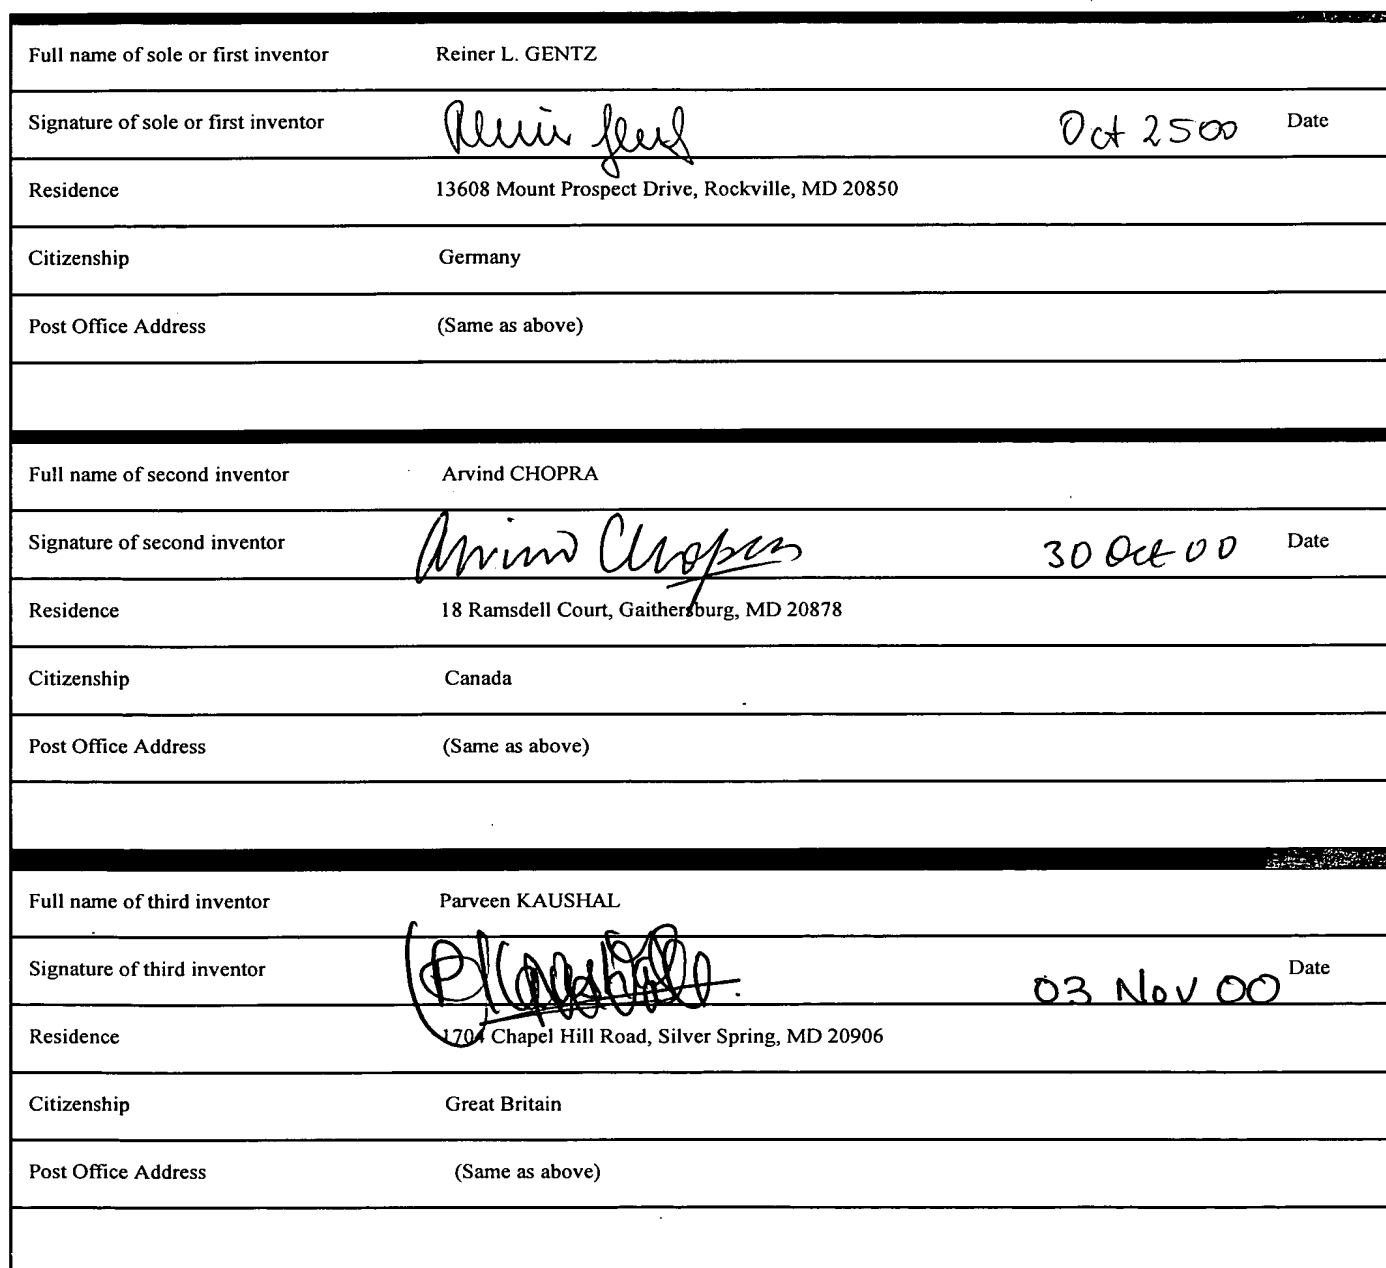 Full name of sole or first inventor Reiner L. GENTZ
Signature of sole or first inventor Reiner Gentz Oct 25 00 Date
Residence 13608 Mount Prospect Drive, Rockville, MD 20850
Citizenship Germany
Post Office Address (Same as above)
Full name of second inventor Arvind CHOPRA
Signature of second inventor Arvind Chopra 30 Oct 00 Date
Residence 18 Ramsdell Court, Gaithersburg, MD 20878
Citizenship Canada
Post Office Address (Same as above)
Full name of third inventor Parveen KAUSHAL
Signature of third inventor P Kaushal 03 Nov 00 Date
Residence 1704 Chapel Hill Road, Silver Spring, MD 20906
Citizenship Great Britain
Post Office Address (Same as above)